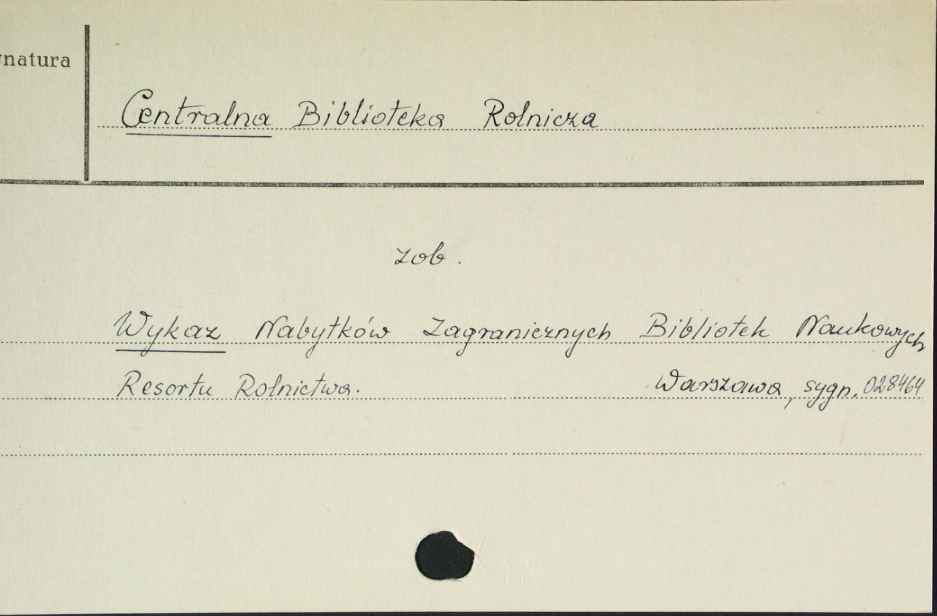 ynatura
Centralna Biblioteka Rolnicza
zob.
Wykaz Nabytków Zagranicznych Bibliotek Naukowych
Resortu Rolnictwa. Warszawa, sygn. 028464